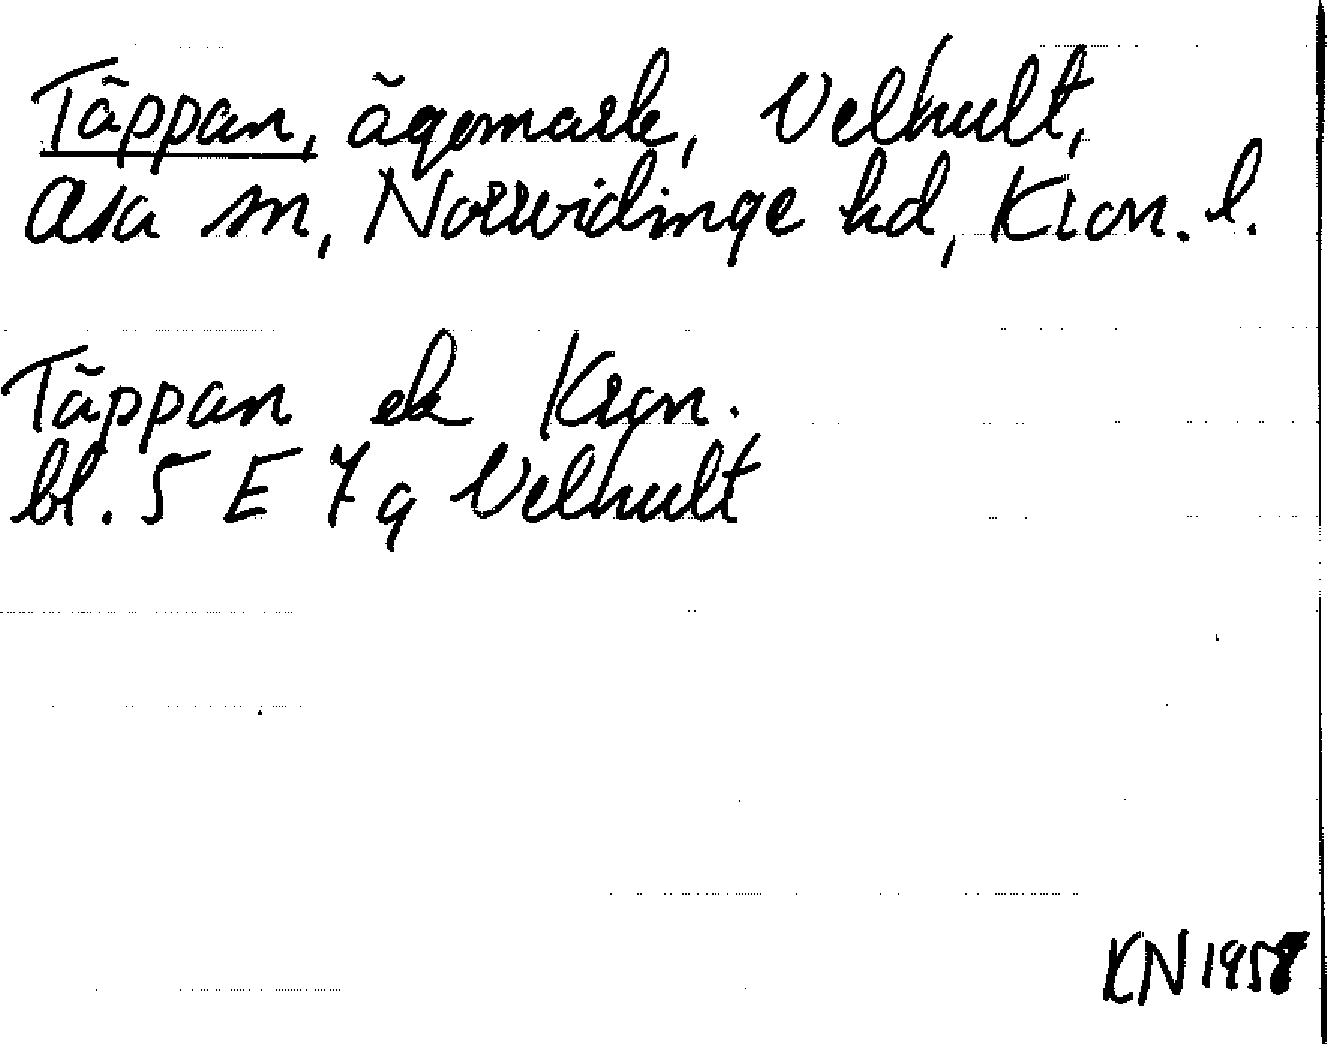 Täppan, ägomark, Velhult,
Asa sn, Norrvidinge hd, Kron. l.
Täppan ek Kron.
bl. 5 E 7 g Velhult
KN 1958